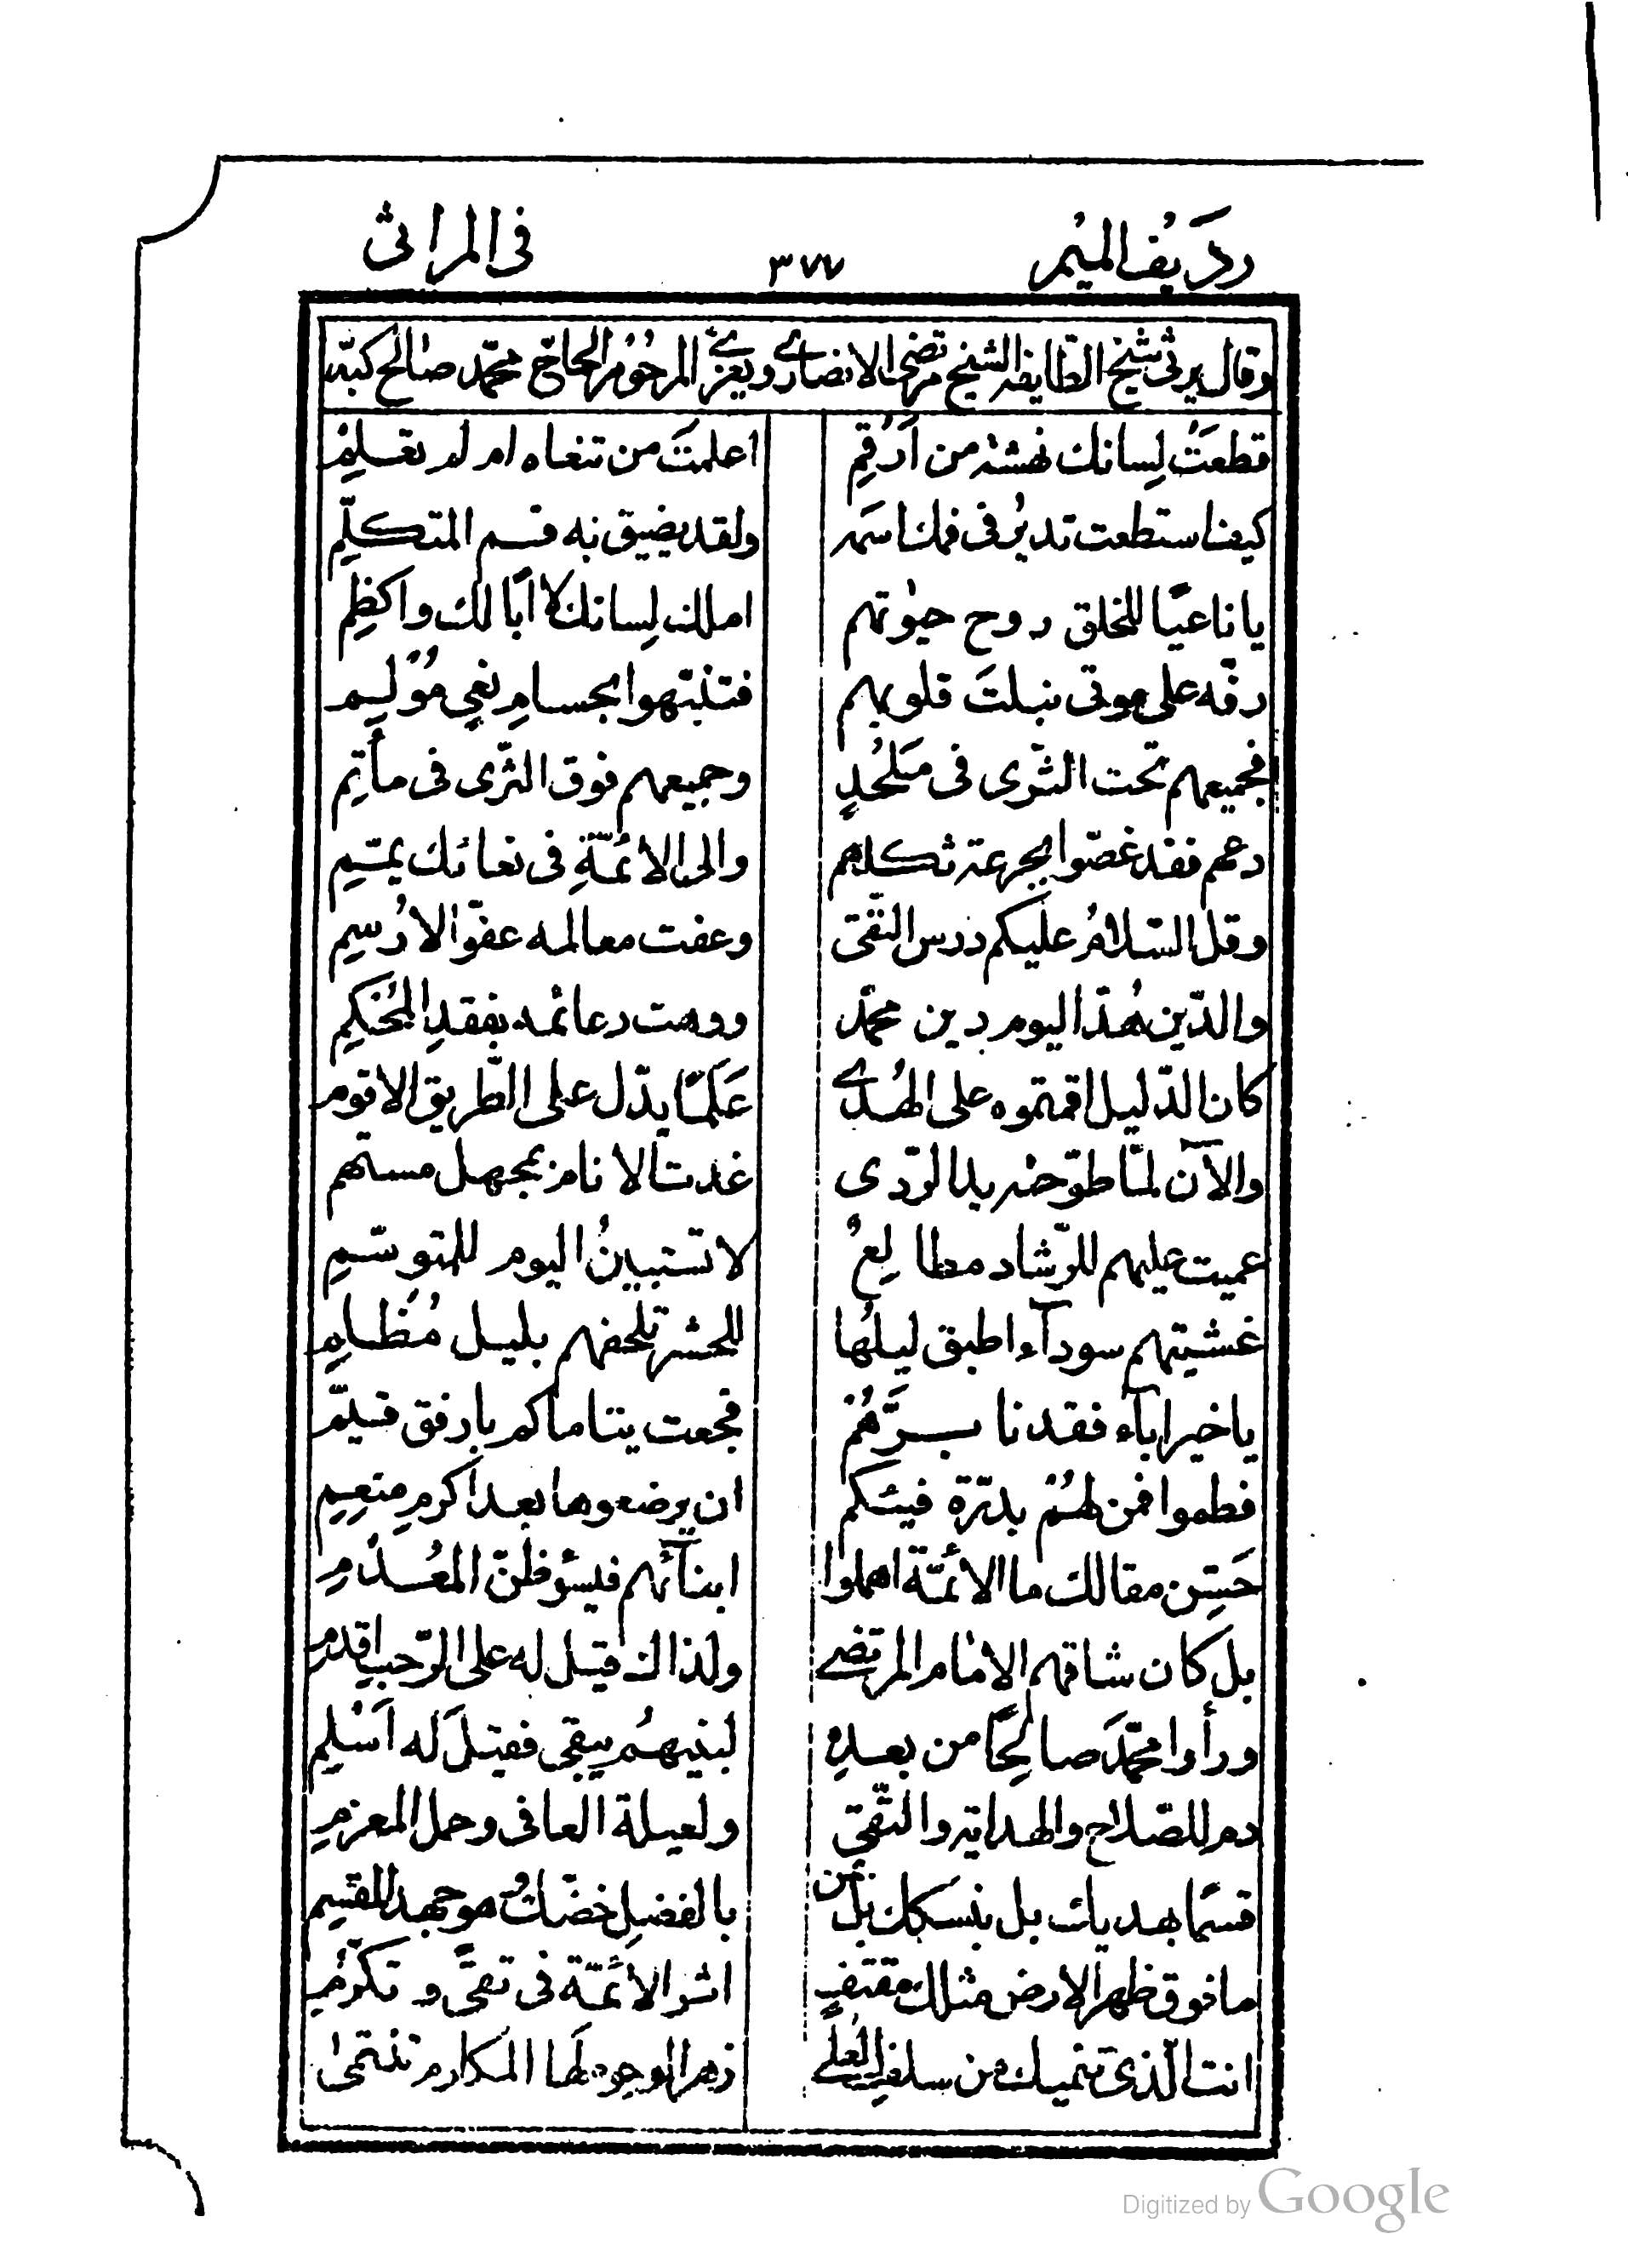 رديف الميم ٣٧٧ في المراثي
وقال يرثي شيخ الطايفه الشيخ مرتضى الانصاري ويعزي المرحوم الحاج محمّد صالح كبّه
قطعت لِسانك نهشة من اَرقمِ اعلمتَ من تنعاه ام لم تعلمِ
كيف استطعت تديرُ في فمك اسمه ولقد يضيق به فم المتكلّمِ
يا ناعيًا للخلق روح حيوٰتهم املك لِسانك لا اَبا لك واكظِمِ
رفّه على موتى نبلتَ قلوبهم فتنبّهوا بجسامِ نعيٍ مؤلِم
فجميعهم تحت الثّرى في مَلحُدٍ وجميعهم فوق الثرّى في مأتِمِ
دعهم فقد غصّوا بجرعة ثكلهم والى الائمّةِ في نعائك يمّمِ
وقل السّلامُ عليكم درس التّقى وعفت معالمه عفوّ الارُسمِ
والدّين هُدّ اليوم دين محمّد ووهت دعائمه بفقدِ المُحكمِ
كان الدّليل اقمتموه على الهُدى عَلَمًا يدّل على الطّريق الاقوم
والآن لمّا طوّحته يد الرّدى غدت الانام بمجهل مستبهم
عميت عليهم للرّشاد مطالِعُ لا تستبينُ اليوم للمتوسّمِ
غشيتهم سودآء اطبق ليلُها للحشر تلحفهم بليل مُظلمِ
يا خير اٰبآء فقدنا بَرَّهُمْ فجعت يتاماكم بارفق قيّم
فطموا فمن لهُم بدرّة فيئكم ان يرضعوها بعد اكرمِ منعِمِ
حَسِّن مقالك ما الائمّة اهملوا ابنآئهم فيسؤ ظنّ المُعدَمِ
بل كان شاقهم الامام المرتضى ولذاك قيل له على الرّحب اقدم
ورأوا محمّدَ صالِحًا من بعده لبنيهم يبقى فقيلَ له اَسْلمِ
دم للصّلاح والهداية والتّقى ولعيلة العافي وحمل المغرم
قسمًا بهديك بل بنسكك بل بمن بالفضل خصّك وهو جهد المقسم
ما فوق ظهر الارض مثلك مقتفٍ اثر الائمّة في تقىً وتكرّم
انت الّذي تنميك من سلف العُلى زهر الوجوه لها المكارم تنتمي
Digitized by Google